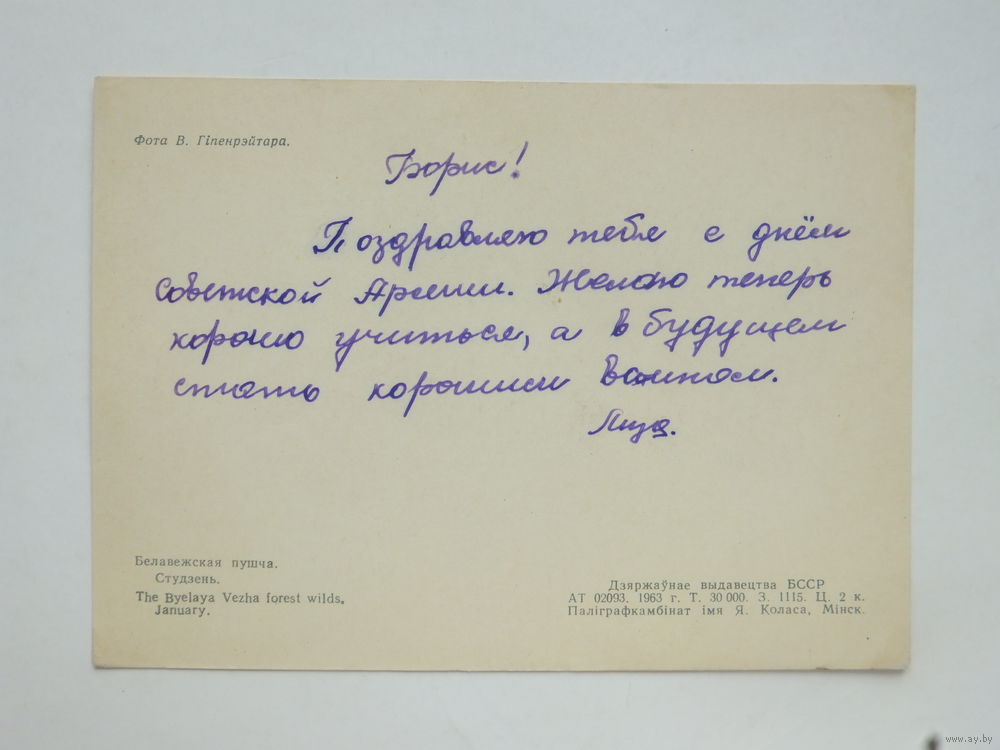 Фота В. Гіпенрэйтара.
Борис!
Поздравляю тебя с днём
Советской Армии. Желаю теперь
хорошо учиться, а в будущем
стать хорошим воином.
Лиза.
Белавежская пушча.
Студзень.
The Byelaya Vezha forest wilds,
January.
Дзяржаўнае выдавецтва БССР
АТ 02093. 1963 г. Т. 30 000. З. 1115. Ц. 2 к.
Паліграфкамбінат імя Я. Коласа, Мінск.
www.ay.by